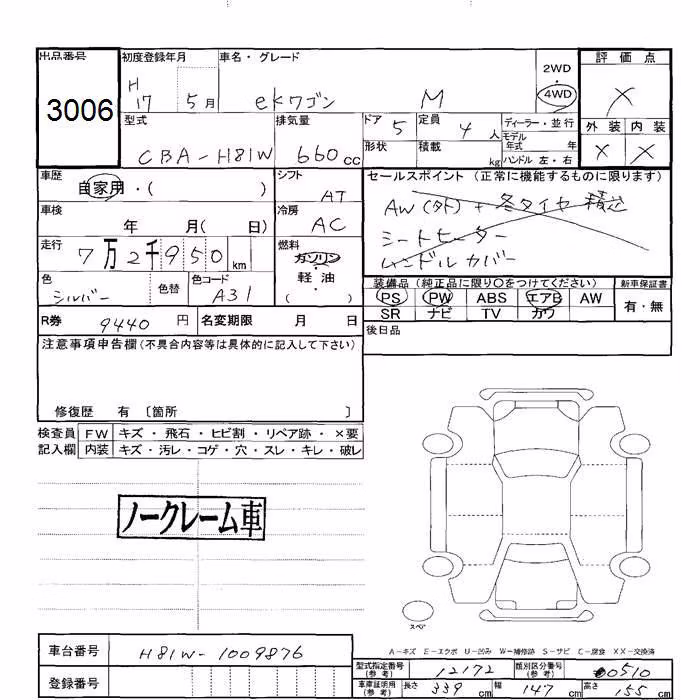 出品番号 初度登録年月 車名・グレード 2WD 評価点
3006 H17 5月 ekワゴン M 4WD ×
型式 排気量 ドア 5 定員 4人 ディーラー・並行 外装 内装
CBA-H81W 660cc 形状 積載 kg モデル年式 年 ハンドル 左・右 × ×
車歴 シフト セールスポイント (正常に機能するものに限ります)
自家用・( ) AT AW(夕ト)+冬タイヤ積込
車検 年 月( 日) 冷房 AC シートヒーター
走行 7万2千950km 燃料 ガソリン ハンドルカバー
色 シルバー 色替 色コード A31 軽・油 ( )
装備品 (純正品に限り○をつけてください) 新車保証書
PS PW ABS エアB AW 有・無
SR ナビ TV カワ
R券 9440円 名変期限 月 日 後日品
注意事項申告欄(不具合内容等は具体的に記入して下さい)
修復歴 有 〔箇所 〕
検査員 FW キズ・飛石・ヒビ割・リペア跡・×要
記入欄 内装 キズ・汚レ・コゲ・穴・スレ・キレ・破レ
ノークレーム車
スペア
A-キズ E-エクボ U-凹み W-補修跡 S-サビ C-腐食 XX-交換済
車台番号 H81W-1009876
型式指定番号(参考) 12172 類別区分番号(参考) 0510
登録番号 車庫証明用(参考) 長さ 339cm 幅 147cm 高さ 155cm